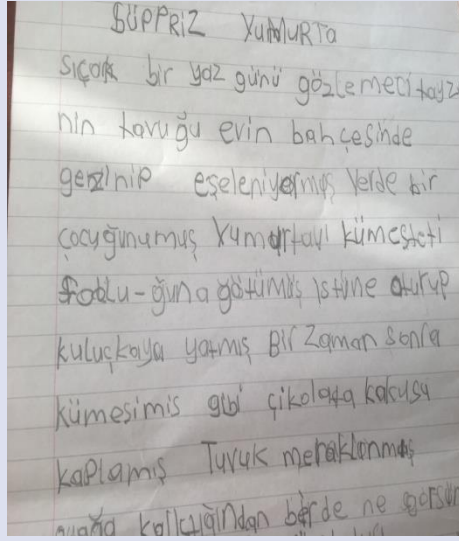 SÜPPRİZ YUMURTA
sıcak bir yaz günü gözlemeci tayze
nin tavuğu evin bahçesinde
gezinip eşeleniyormuş Yerde bir
çocuğunumuş Yumurtayı kümesteti
götümüş istüne oturup
kuluçkaya yatmış Bir zaman sonra
kümesimis gibi çikolata kokusu
kaplamış Tuvuk meraklanmış
kalktığından bèrde ne görsün